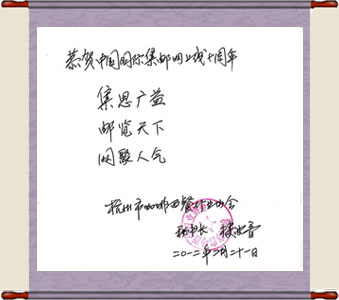 恭贺中国国际集邮网上线十周年
集思广益
邮览天下
网聚人气
杭州市咖啡西餐行业协会
秘书长
二〇一二年二月二十一日